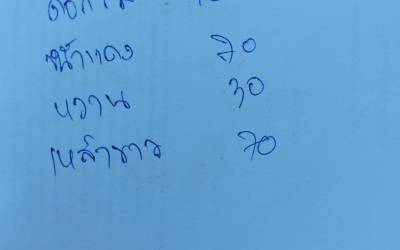 น้ำแดง 20
หวาน 30
เหล้าขาว 70